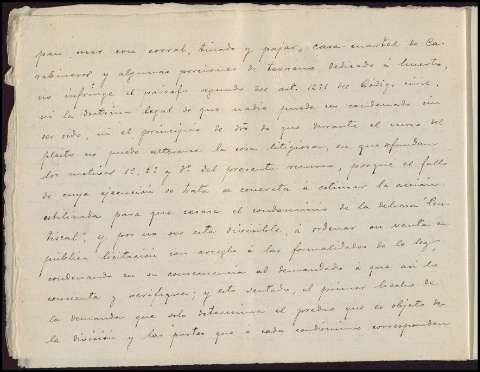 pan mer con corral, tinado y pajar, casa cuartel de Ca-
rabineros y algunas porciones de terreno dedicado á huerta,
no infringe el párrafo segundo del art. 1251 del Código civil,
ni la doctrina legal de que nadie puede ser condenado sin
ser oido, ni el principio de dro de que durante el curso del
pleito no puede alterarse la cosa litigiosa, en que se fundan
los motivos 1º, 2º y 3º del presente recurso, porque el fallo
de cuya ejecución se trata se concreta á estimar la acción
ejercitada para que cesara el condominio de la dehesa
y por no ser esta divisible, á ordenar su venta en
pública licitación con arreglo á las formalidades de la ley,
condenando en su consecuencia al demandado á que así lo
consienta y verifique; y esto sentado, el primer hecho de
la demanda que solo determina el predio que es objeto de
la división y las partes que á cada condómino corresponden